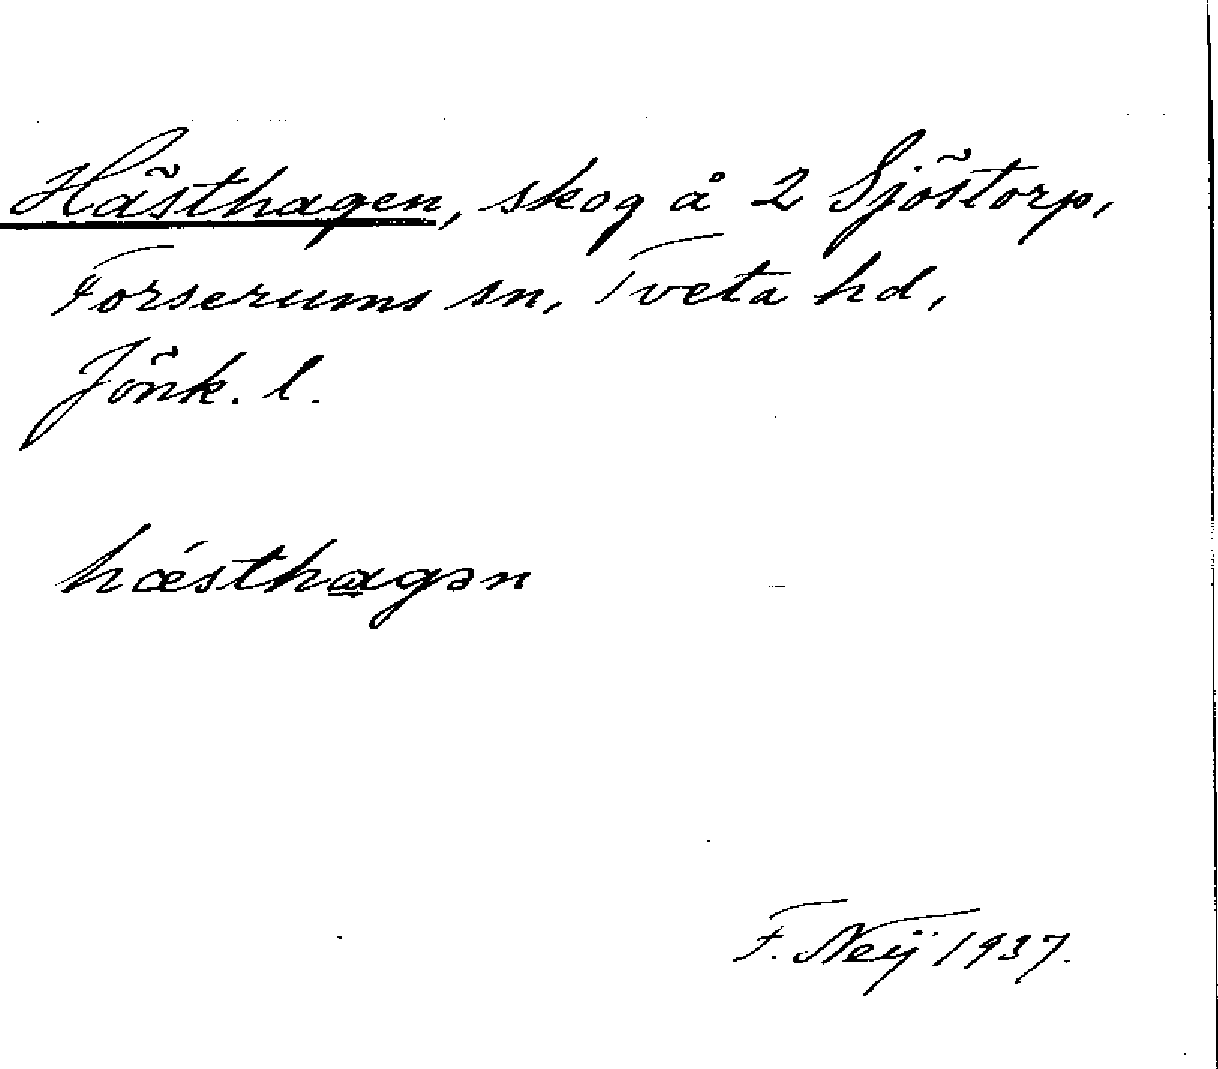 Hästhagen, skog å 2 Sjöstorp,
Forserums sn, Tveta hd,
Jönk. l.
hǽsthagən
F. Neij 1937.